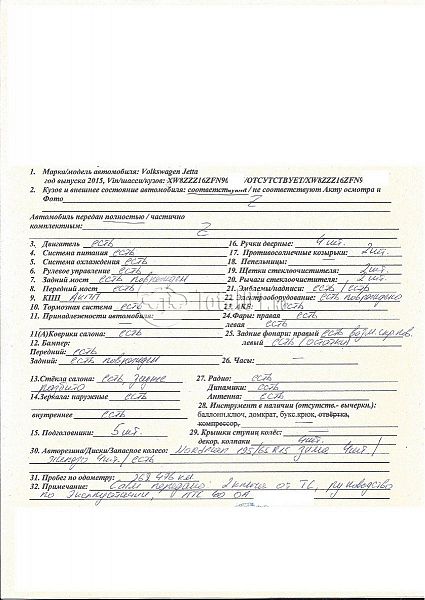 1. Марка/модель автомобиля: Volkswagen Jetta
год выпуска 2015, Vin/шасси/кузов: XW8ZZZ16ZFN9 /ОТСУТСТВУЕТ/XW8ZZZ16ZFN9
2. Кузов и внешнее состояние автомобиля: соответствуют / не соответствуют Акту осмотра и
Фото Z
Автомобиль передан полностью / частично
комплектным: Z
3. Двигатель есть
4. Система питания есть
5. Система охлаждения есть
6. Рулевое управление есть
7. Задний мост есть
8. Передний мост есть
9. КПП АКПП
10. Тормозная система есть
11. Принадлежности автомобиля: —
11(А)Коврики салона: есть
12. Бампер:
Передний: есть
Задний: есть
13.Стёкла салона: есть,
14.Зеркала: наружные есть
внутреннее есть
15. Подголовники: 5 шт.
16. Ручки дверные: 4 шт.
17. Противосолнечные козырьки: 2 шт.
18. Пепельницы: —
19. Щетки стеклоочистителя: 2 шт.
20. Рычаги стеклоочистителя: 2 шт.
21. Эмблемы/надписи: есть / есть
22. Электрооборудование: есть
23. АКБ: есть
24.Фары: правая есть
левая есть
25. Задние фонари: правый есть
левый есть /
26. Часы: —
27. Радио: есть
Динамики: есть
Антенна: есть
28. Инструмент в наличии (отсутств.- вычеркн.):
баллонн.ключ, домкрат, букс.крюк, отвёртка,
компрессор,
29. Крышки ступиц колёс: —
декор. колпаки 4 шт.
30. Авторезина/Диски/Запасное колесо: Nordman 195/65 R15 зима 4 шт /
4 шт. / есть
31. Пробег по одометру: км
32. Примечание: 2 ключа от ТС, руководство
по эксплуатации,